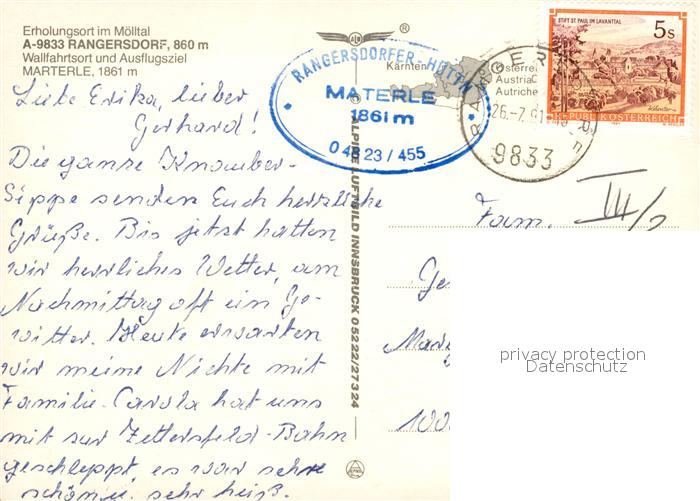 Erholungsort im Mölltal
A-9833 RANGERSDORF, 860 m
Wallfahrtsort und Ausflugsziel
MARTERLE, 1861 m
Liebe Erika, lieber
Gerhard!
Die ganze
Sippe senden Euch herzliche
Grüße. Bis jetzt hatten
wir herrliches Wetter, am
Nachmittag oft ein Ge-
witter. Heute erwarten
wir meine Nichte mit
Familie. Carola hat uns
mit zur Zettersfeld-Bahn
geschleppt, es war sehr
schön u. sehr heiß.
RANGERSDORFER-HÜTTN
MATERLE
1861 m
0 48 23 / 455
Kärnten
Österrei
Austria
Autriche
26.-7.91
9833
STIFT ST. PAUL IM LAVANTTAL
5 S
REPUBLIK ÖSTERREICH
© ALPINE LUFTBILD INNSBRUCK 05222/27324
Fam. III/2
Ge
Mar
100
privacy protection
Datenschutz